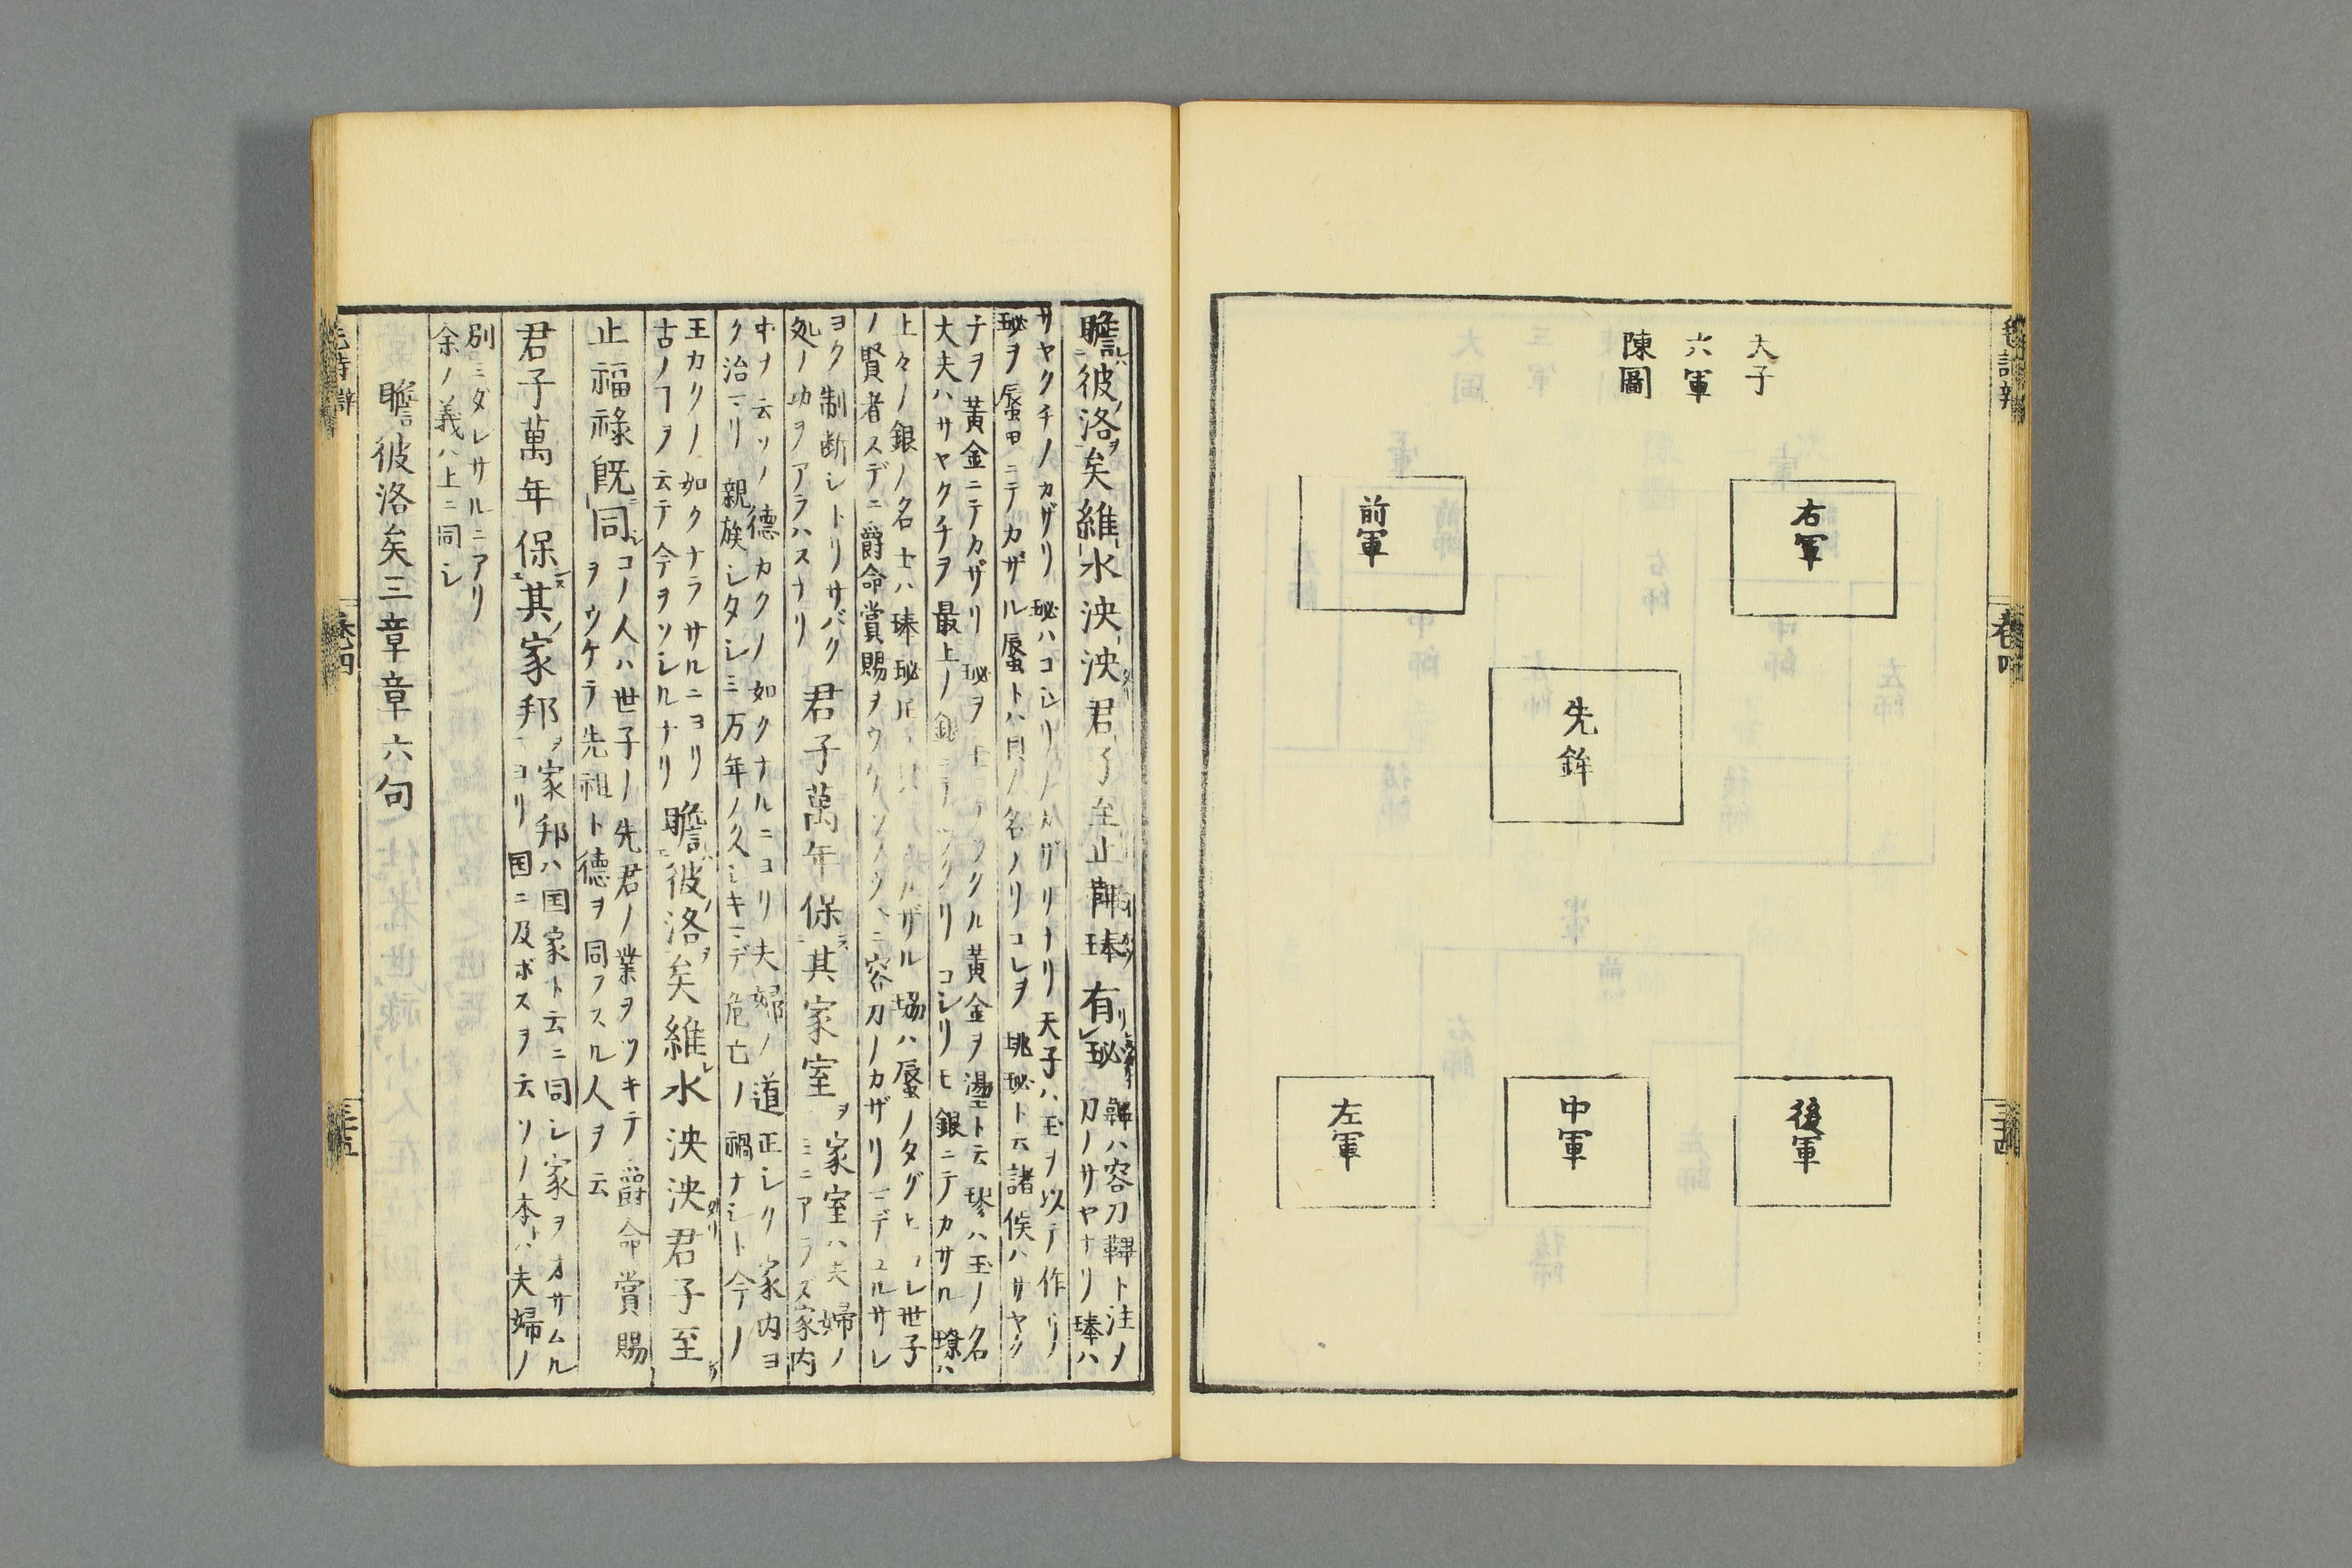 天子
六軍
陳圖
右軍
前軍
先鉾
後軍
中軍
左軍
瞻彼洛矣維水泱泱君子至止鞞琫有珌
鞞ハ容刀鞸ト注ノ
刀ノサヤナリ琫ハ
サヤクチノカザリ珌ハコシリノカザリナリ天子ハ玉ヲ以テ作リ
珌ヲ蜃田ニテカザル蜃トハ貝ノ名ノリコレヲ珧珌ト云諸侯ハサヤク
チヲ黄金ニテカザリ珌ヲ
ツクル黄金ヲ璗ト云璆ハ玉ノ名
大夫ハサヤクチヲ最上ノ銀ニテツクリコシリモ銀ニテカサル璙ハ
上々ノ銀ノ名士ハ琫珌
カザル珕ハ蜃ノタグヒ
世子
ノ賢者スデニ爵命賞賜ヲウケ
容刀ノカザリマデユルサレ
ヨク制断シトリサバク
処ノ功ヲアラハスナリ
君子萬年保其家室
家室ハ夫婦ノ
ミニアラズ家内
中ナ云ソノ德カクノ如クナルニヨリ夫婦ノ道正シク家内ヨ
ク治マリ親族シタシミ万年ノ久シキマデ危亡ノ禍ナシト今ノ
王カクノ如クナラサルニヨリ
古ノフヲ云テ今ヲソシルナリ
瞻彼洛矣維水泱泱君子至
止福祿既同
コノ人ハ世子ノ先君ノ業ヲツキテ爵命賞賜
ヲウケテ先祖ト德ヲ同フスル人ヲ云
君子萬年保其家邦
家邦ハ国家ト云ニ同シ家ヲオサムル
ヨリ国ニ及ボスヲ云ソノ本ハ夫婦ノ
別ミダレサルニアリ
余ノ義ハ上ニ同シ
瞻彼洛矣三章章六句